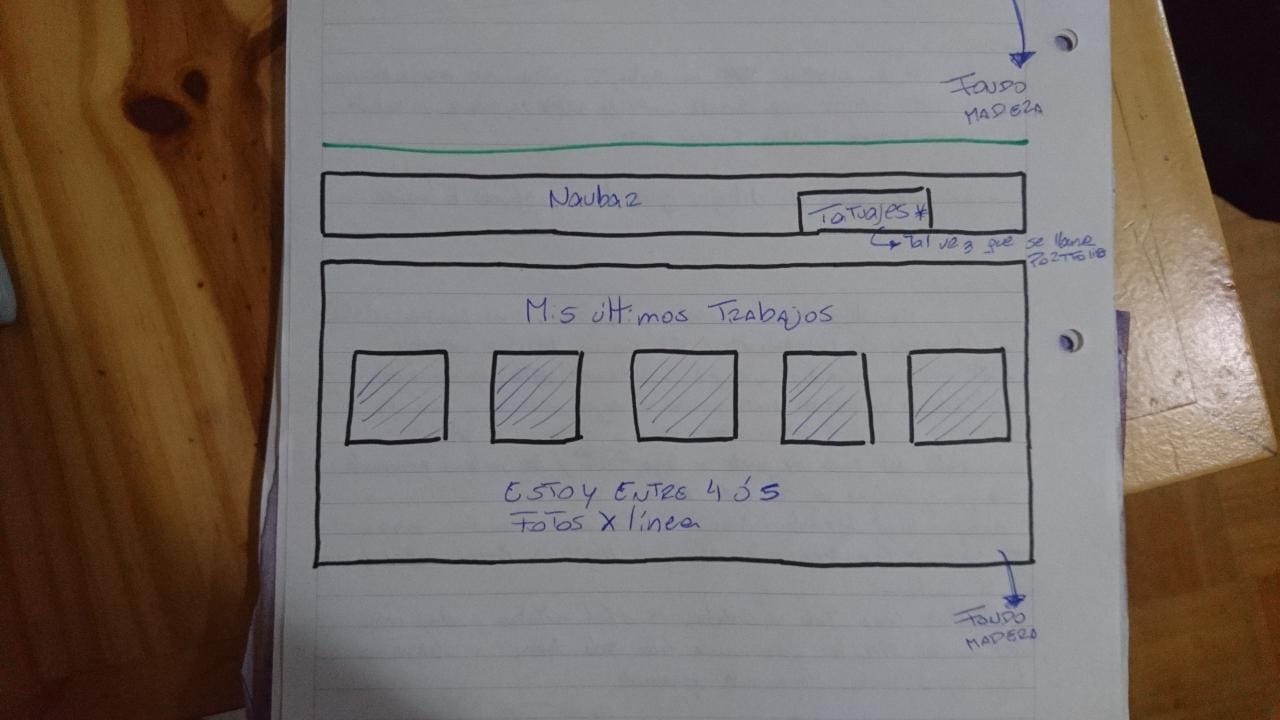 FONDO
MADERA
Navbar
Tatuajes *
Tal vez que se llame
Portfolio
Mis últimos Trabajos
ESTOY ENTRE 4 ó 5
Fotos X línea
FONDO
MADERA